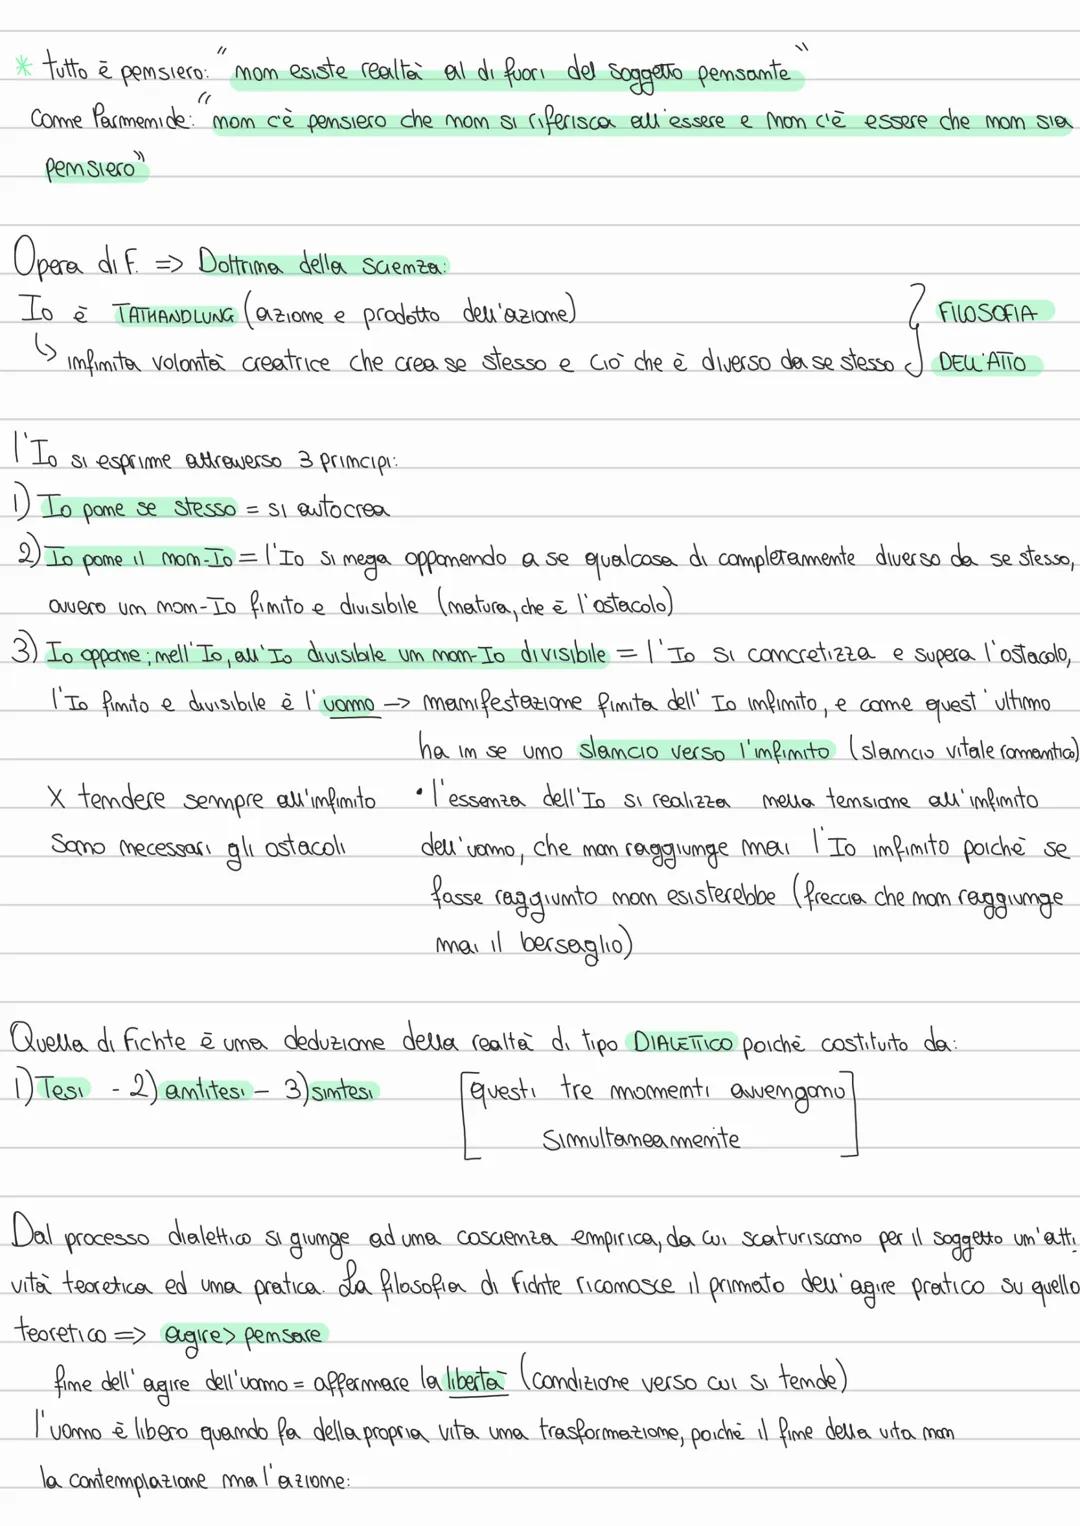 * tutto è pensiero: "non esiste realtà al di fuori del soggetto pensante"
Come Parmenide: "non c'è pensiero che non si riferisca all'essere e non c'è essere che non sia
pensiero"
Opera di F. => Dottrina della Scienza:
Io è TATHANDLUNG (azione e prodotto dell'azione)
↳ infinita volontà creatrice che crea se stesso e ciò che è diverso da se stesso } FILOSOFIA DELL'ATTO
l'Io si esprime attraverso 3 principi:
1) Io pone se stesso = si autocrea
2) Io pone il non-Io = l'Io si nega opponendo a se qualcosa di completamente diverso da se stesso,
ovvero un non-Io finito e divisibile (natura, che è l'ostacolo)
3) Io oppone; nell'Io, all'Io divisibile un non-Io divisibile = l'Io si concretizza e supera l'ostacolo,
l'Io finito e divisibile è l'uomo -> manifestazione finita dell'Io infinito, e come quest'ultimo
ha in se uno slancio verso l'infinito (slancio vitale romantico)
X tendere sempre all'infinito
sono necessari gli ostacoli
• l'essenza dell'Io si realizza nella tensione all'infinito
dell'uomo, che non raggiunge mai l'Io infinito poichè se
fosse raggiunto non esisterebbe (freccia che non raggiunge
mai il bersaglio)
Quella di Fichte è una deduzione della realtà di tipo DIALETTICO poichè costituto da:
1) Tesi - 2) antitesi - 3) sintesi [questi tre momenti avvengono
simultaneamente]
Dal processo dialettico si giunge ad una coscienza empirica, da cui scaturiscono per il soggetto un'atti
vità teoretica ed una pratica. La filosofia di Fichte riconosce il primato dell'agire pratico su quello
teoretico => agire > pensare
fine dell'agire dell'uomo = affermare la libertà (condizione verso cui si tende)
l'uomo è libero quando fa della propria vita una trasformazione, poichè il fine della vita non
la contemplazione ma l'azione: